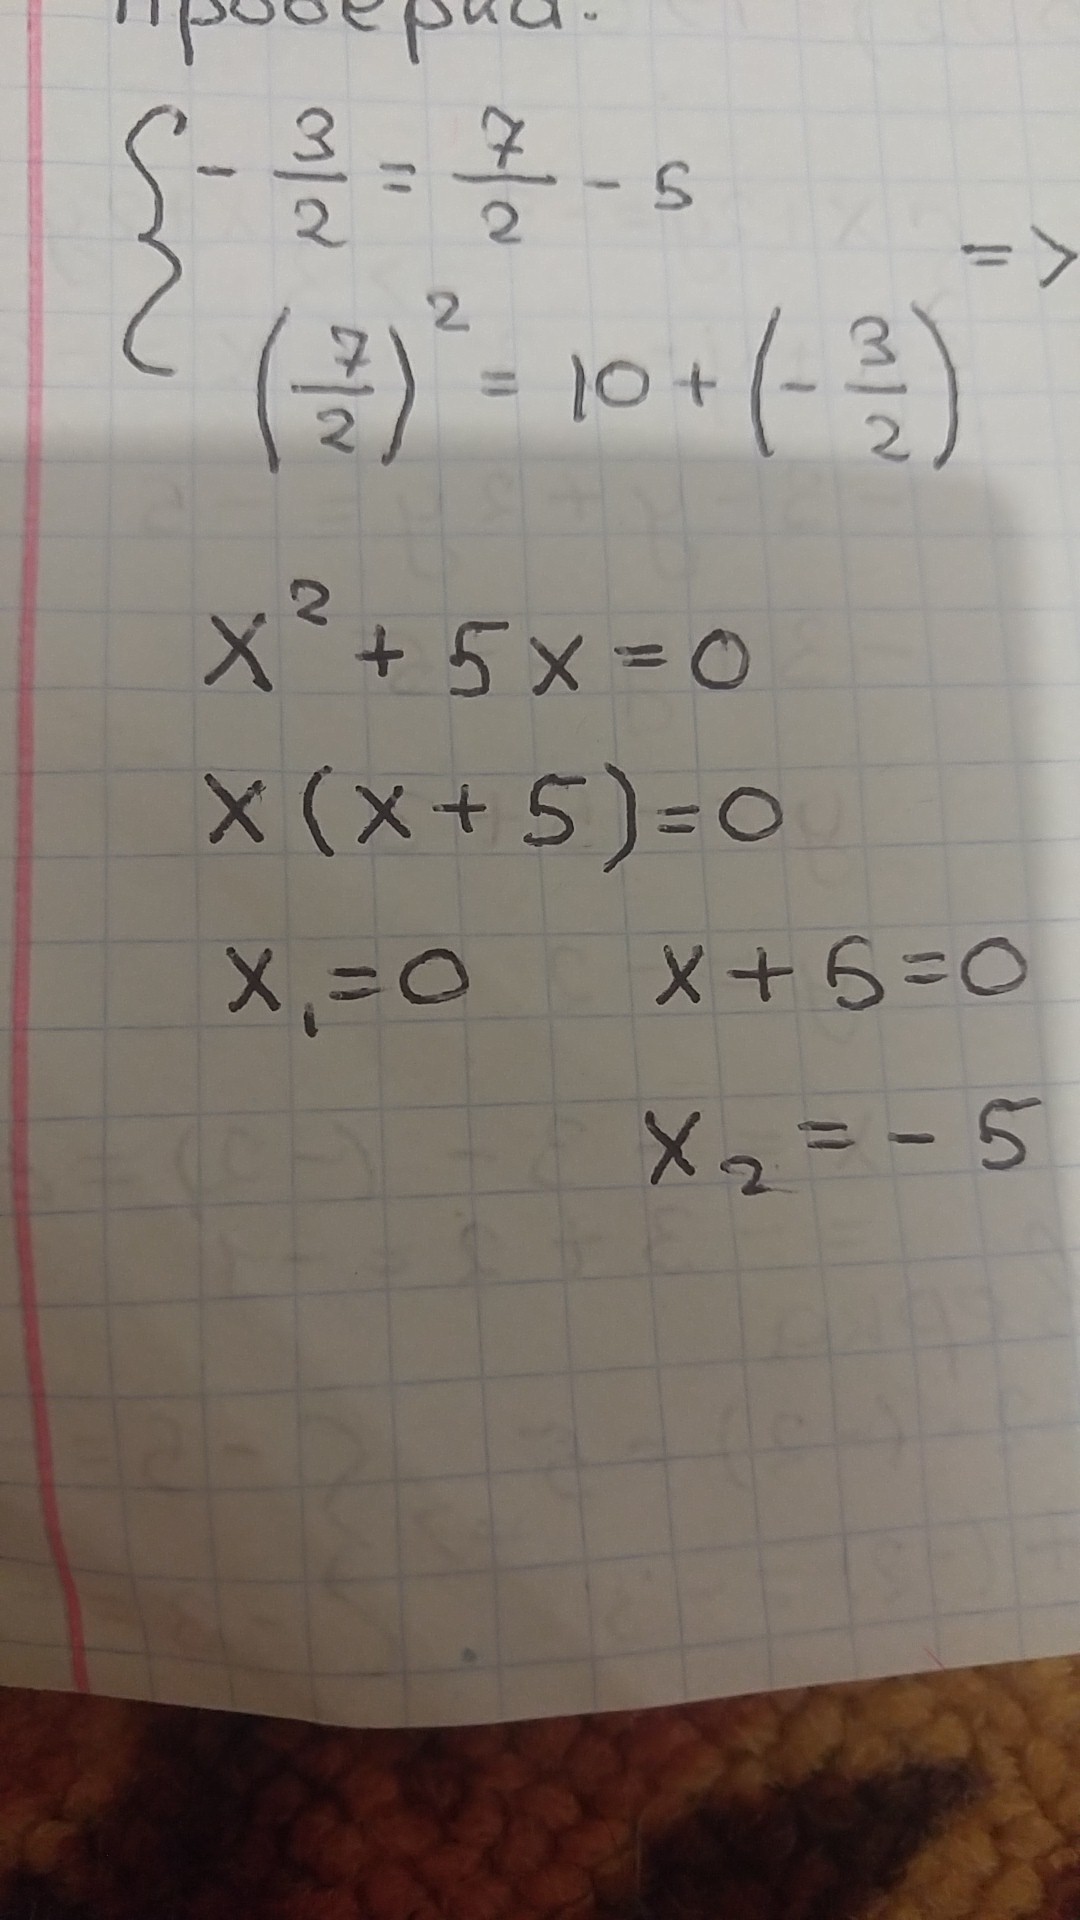 Проверка:
{ - 3/2 = 7/2 - 5
(7/2)² = 10 + (- 3/2) =>
x² + 5x = 0
x(x + 5) = 0
x₁ = 0 x + 5 = 0
x₂ = - 5